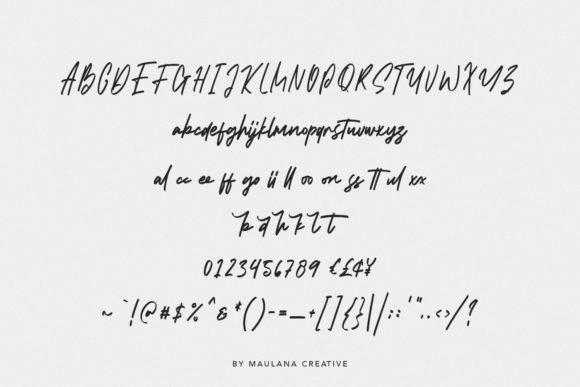 ABCDEFGHIJKLMNOPQRSTUVWXYZ
abcdefghijklmnopqrstuvwxyz
al cc ee ff go ii ll oo on ss tt ul xx
b d h k l t
0123456789 €£¢¥
~ `!@#$%^&*()-=_+[]{}|/:;'".,<>/?
BY MAULANA CREATIVE